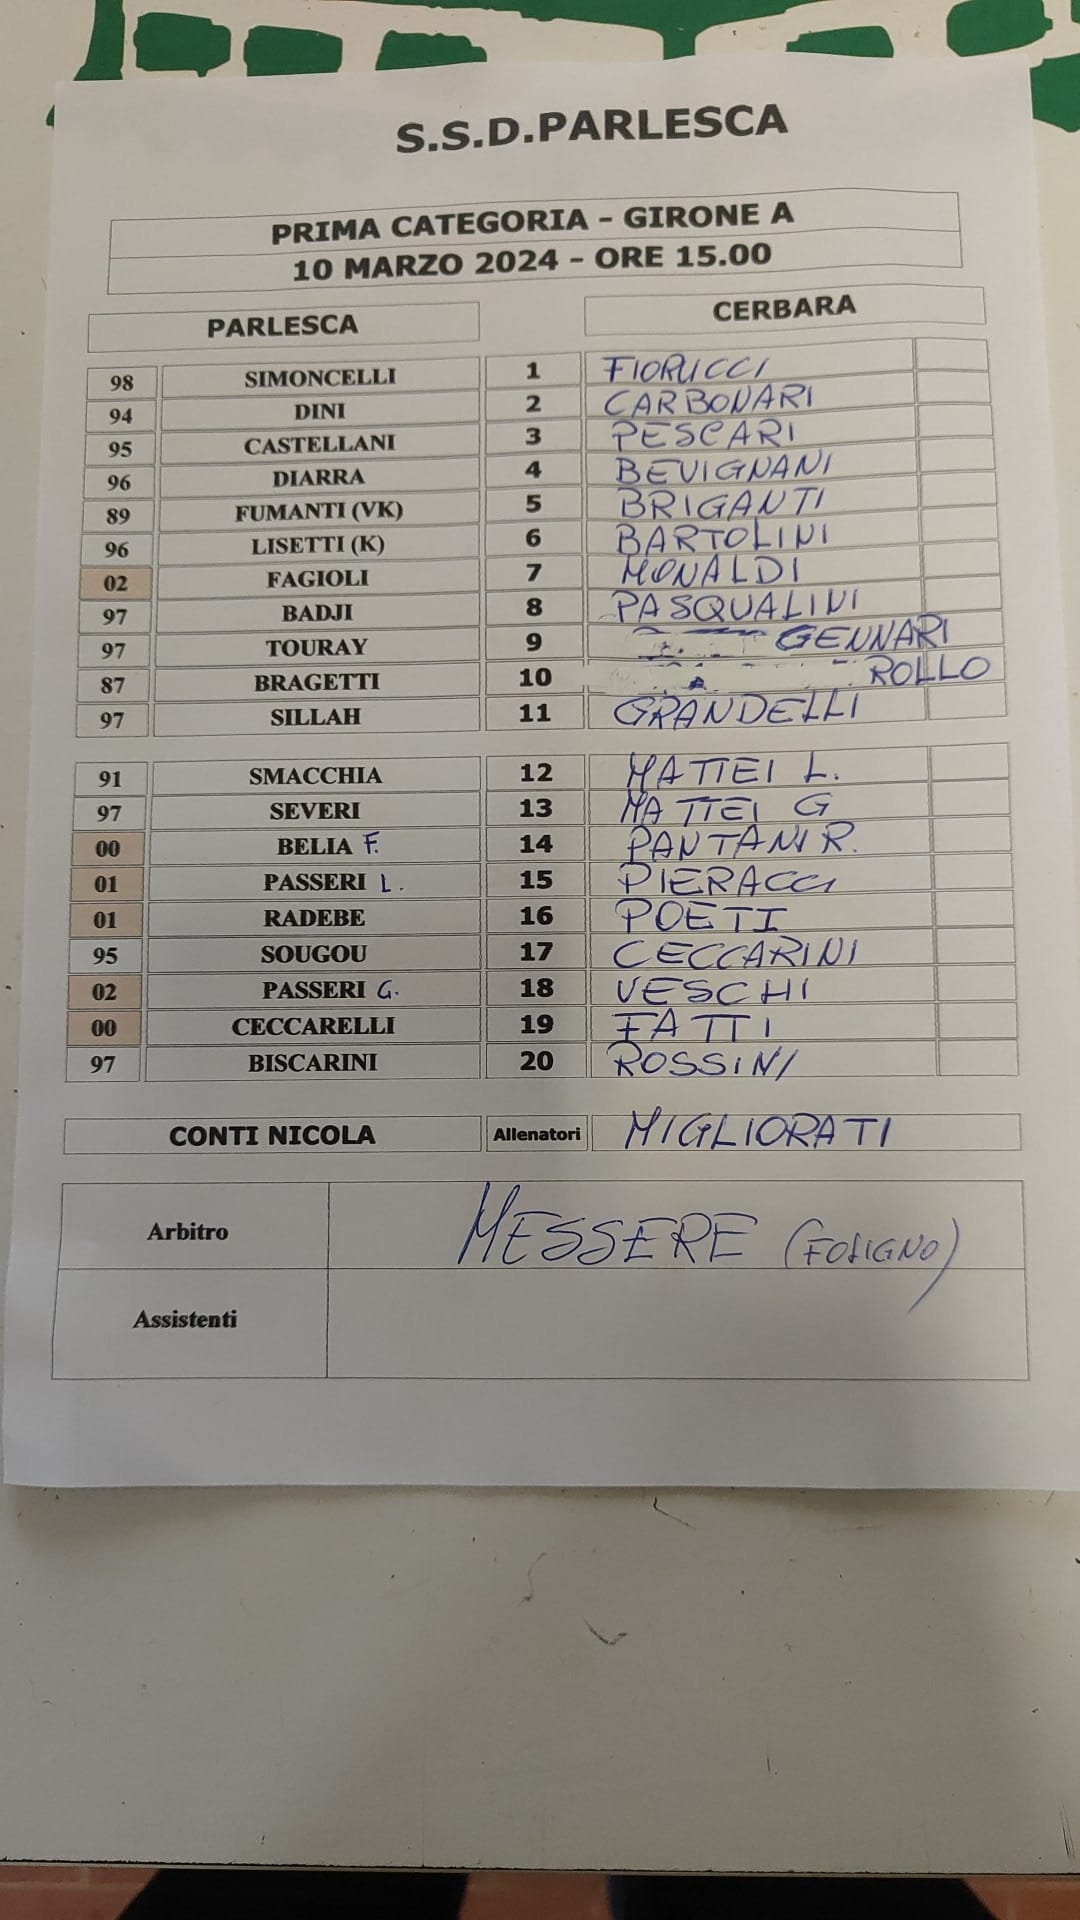 S.S.D.PARLESCA
PRIMA CATEGORIA - GIRONE A
10 MARZO 2024 - ORE 15.00
PARLESCA CERBARA
98 SIMONCELLI 1 FIORUCCI
94 DINI 2 CARBONARI
95 CASTELLANI 3 PESCARI
96 DIARRA 4 BEVIGNANI
89 FUMANTI (VK) 5 BRIGANTI
96 LISETTI (K) 6 BARTOLINI
02 FAGIOLI 7 MONALDI
97 BADJI 8 PASQUALINI
97 TOURAY 9 GENNARI
87 BRAGETTI 10 ROLLO
97 SILLAH 11 GRANDELLI
91 SMACCHIA 12 MATTEI L.
97 SEVERI 13 MATTEI G
00 BELIA F. 14 PANTANI R.
01 PASSERI L. 15 PIERACCI
01 RADEBE 16 POETI
95 SOUGOU 17 CECCARINI
02 PASSERI G. 18 VESCHI
00 CECCARELLI 19 FATTI
97 BISCARINI 20 ROSSINI
CONTI NICOLA Allenatori MIGLIORATI
Arbitro MESSERE (FOLIGNO)
Assistenti